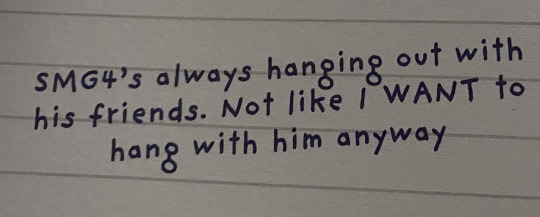 SMG4's always hanging out with
his friends. Not like I WANT to
hang with him anyway